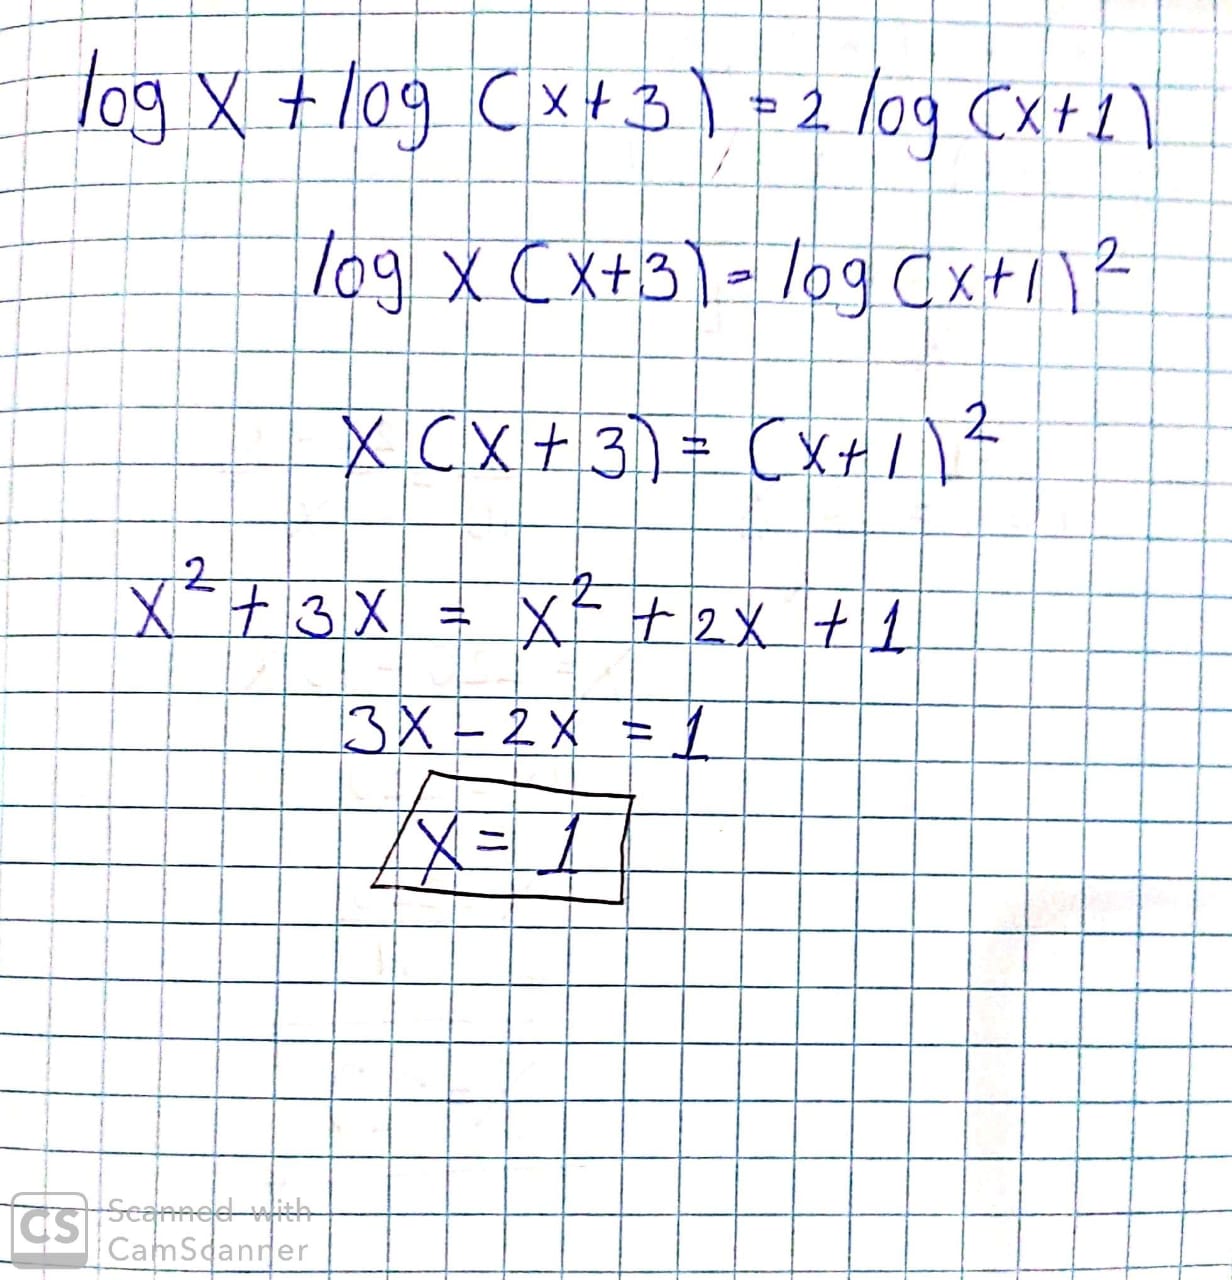 log x + log (x+3) = 2 log (x+1)
log x (x+3) = log (x+1)²
x (x+3) = (x+1)²
x² + 3x = x² + 2x + 1
3x - 2x = 1
x = 1
CS Scanned with
CamScanner